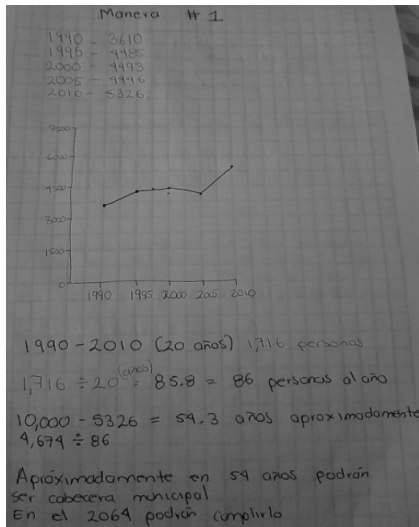 Manera # 1
1990 - 3610
1995 - 4485
2000 - 4493
2005 - 4446
2010 - 5326
7500
6000
4500
3000
1500
0
1990 1995 2000 2005 2010
1990 - 2010 (20 años) 1,716 personas
1,716 ÷ 20 (años) = 85.8 = 86 personas al año
10,000 - 5326 = 54.3 años aproximadamente
4,674 ÷ 86
Aproximadamente en 54 años podrán
ser cabecera municipal
En el 2064 podrán cumplirlo